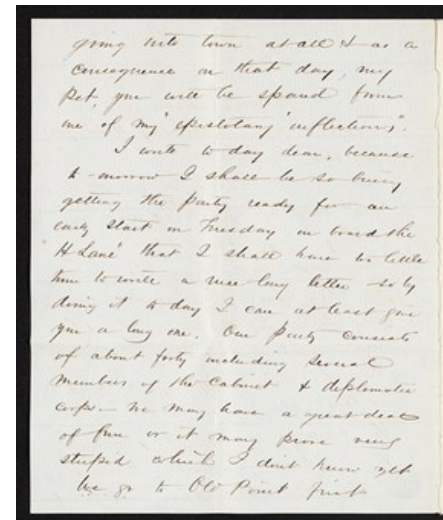 going into town at all & as a
consequence on that day, my
Pet, you will be spared from
me of my "epistolary inflections".
I write to day dear, because
to-morrow I shall be so busy
getting the party ready for an
early start on Tuesday on board the
H Lane' that I shall have so little
time to write a nice long letter so by
doing it to day I can at least give
you a long one. Our Party consists
of about forty including several
Members of the Cabinet & diplomatic
corps— We may have a great deal
of fun or it may prove very
stupid which I don't know yet
We go to Old Point first